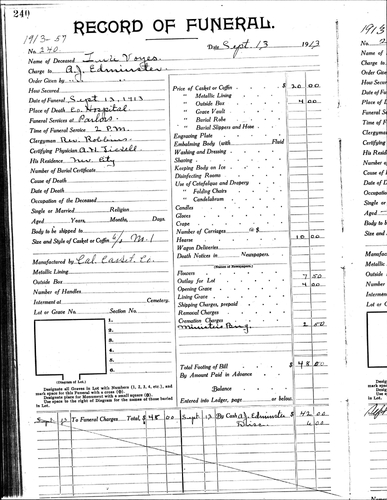 240
RECORD OF FUNERAL.
1913-57
No. 240
Date Sept. 13, 1913
Name of Deceased
Charge to A.J. Edminster
Order Given by
How Secured
Date of Funeral Sept 13, 1913
Place of Death Co. Hospital
Funeral Services at Parlors
Time of Funeral Service 2 P.M.
Clergyman Rev. Robbins
Certifying Physician A.H. Tickell
His Residence Nev. City
Number of Burial Certificate
Cause of Death
Date of Death
Occupation of the Deceased
Single or Married Religion
Aged Years, Months, Days
Body to be shipped to
Size and Style of Casket or Coffin 6/0 M-1
Manufactured by Cal. Casket Co.
Metallic Lining
Outside Box
Number of Handles
Interment at Cemetery.
Lot or Grave No. Section No.
1.
2.
3.
4.
5.
6.
(Diagram of Lot.)
Designate all Graves in Lot with Numbers (1, 2, 3, 4, etc.), and
mark space for this Funeral with a cross (⊗).
Designate place for Monument with a small square (▣).
Use space to the right of Diagram for names of those buried
in Lot.
Price of Casket or Coffin $ 20 00
" Metallic Lining
" Outside Box 4 00
" Grave Vault
" Burial Robe
" Burial Slippers and Hose
Engraving Plate
Embalming Body (with Fluid
Washing and Dressing
Shaving
Keeping Body on Ice
Disinfecting Rooms
Use of Catafalque and Drapery
" Folding Chairs
" Candelabrum
Candles
Gloves
Crape
Number of Carriages @ $
Hearse 10 00
Wagon Deliveries
Death Notices in Newspapers.
(Names of Newspapers.)
Flowers 7 50
Outlay for Lot 4 00
Opening Grave
Lining Grave
Shipping Charges, prepaid
Removal Charges
Cremation Charges
Ministers 2 50
Total Footing of Bill $ 48 00
By Amount Paid in Advance
Balance
Entered into Ledger, page or below.
Sept. 13 To Funeral Charges Total, $ 48 00 Sept 13 By Cash A.J. Edminster $ 42 00
Disc. 6 00